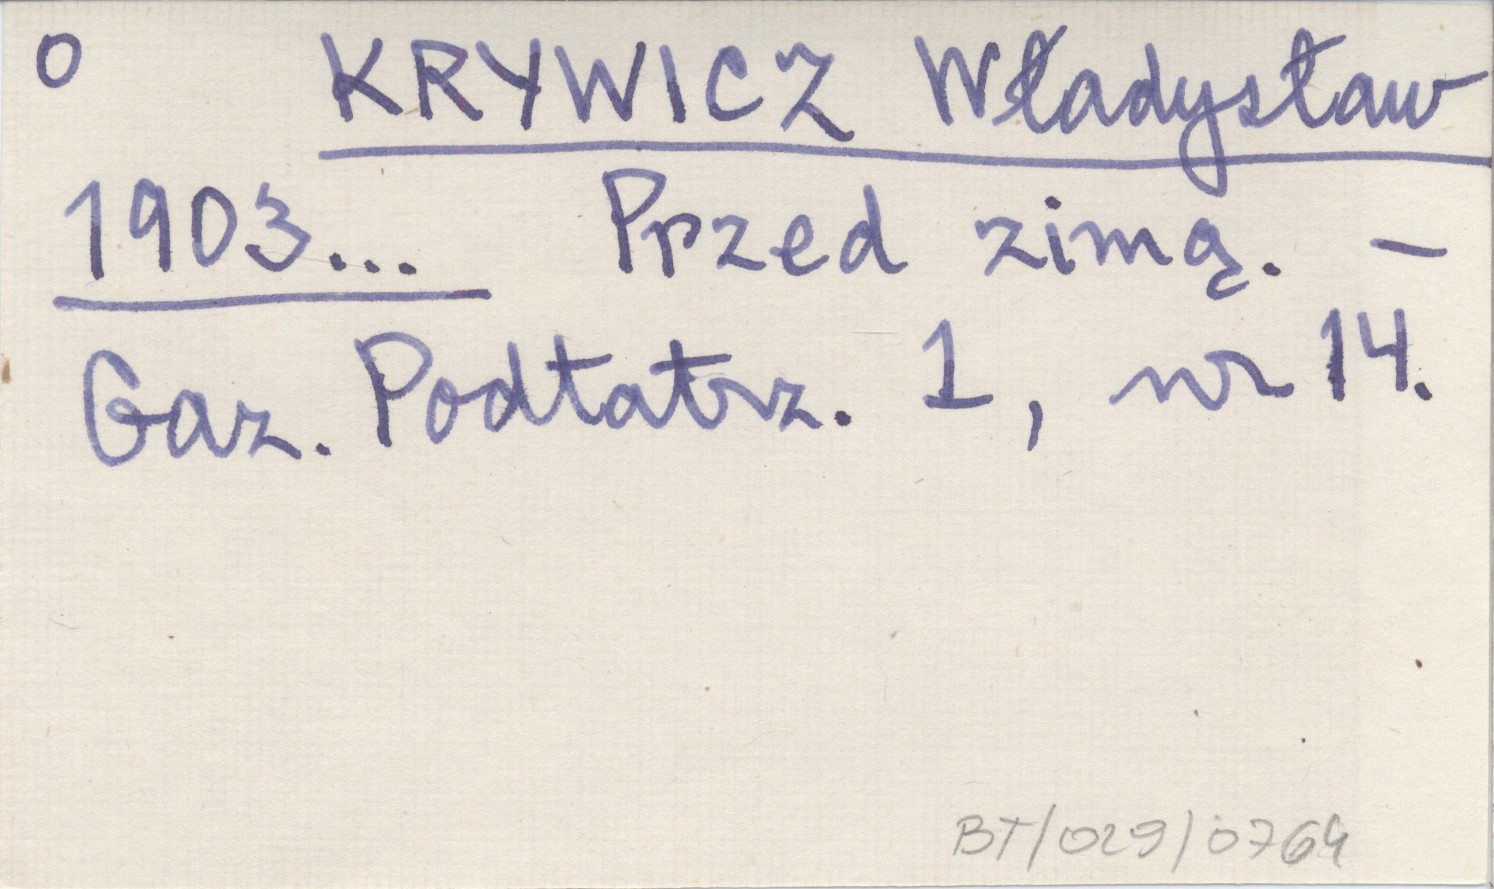 O KRYWICZ Władysław
1903... Przed zimą. –
Gaz. Podtatrz. 1, nr 14.
BT/029/0764